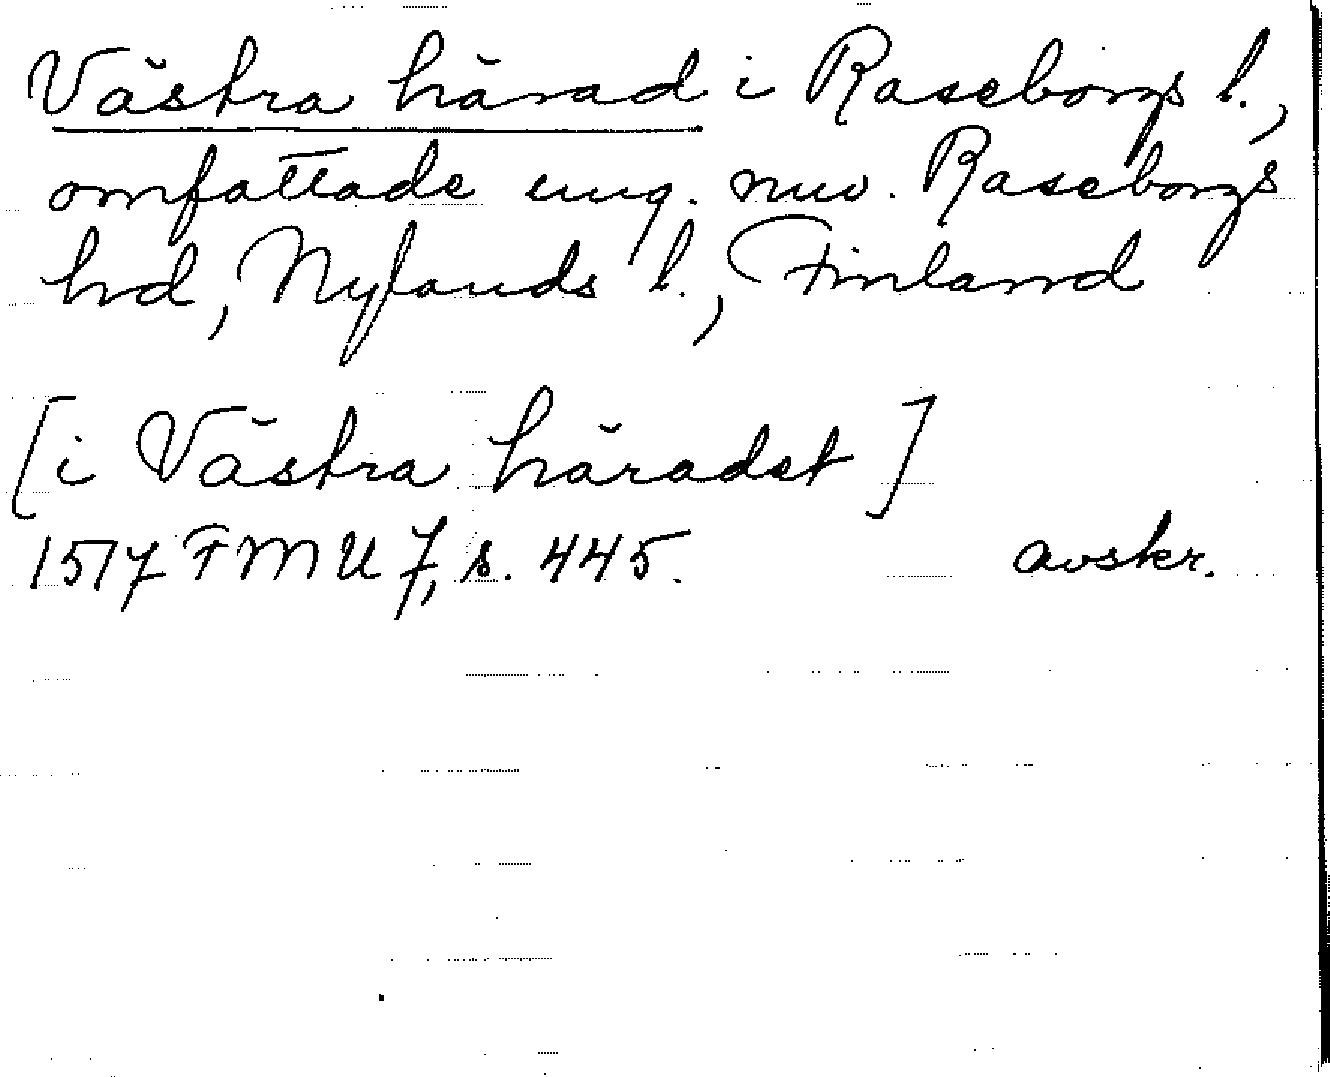 Västra härad i Raseborgs l.,
omfattade ung. nuv. Raseborgs
hd, Nylands l., Finland
[i Västra häradet]
1517 FMU 7, s. 445. avskr.